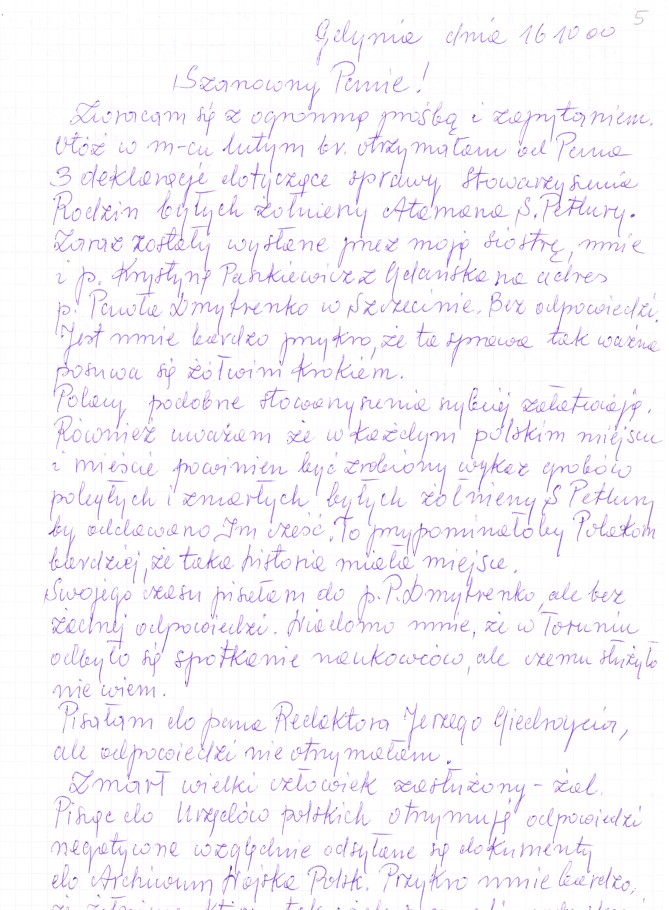 5
Gdynia dnia 16 10 00
Szanowny Panie!
Zwracam się z ogromną prośbą i zapytaniem.
Otóż w m-cu lutym br. otrzymałam od Pana
3 deklaracje dotyczące sprawy stowarzyszenia
Rodzin byłych żołnierzy Atamana S. Petlury.
Zaraz zostały wysłane przez moją siostrę, mnie
i p. Krystynę Paszkiewicz z Gdańska na adres
p. Pawła Dmytrenko w Szczecinie. Bez odpowiedzi.
Jest mnie bardzo przykro, że ta sprawa tak ważna
posuwa się żółwimi krokiem.
Polacy podobne stowarzyszenia szybciej załatwiają.
Również uważam że w każdym polskim miejscu
i mieście powinien być zrobiony wykaz grobów
poległych i zmarłych byłych żołnierzy S Petlury
by oddawano Im cześć. To przypominałoby Polakom
bardziej, że taka historia miała miejsce.
Swojego czasu pisałam do p. P. Dmytrenko, ale bez
żadnej odpowiedzi. Wiadomo mnie, że w Toruniu
odbyło się spotkanie naukowców, ale czemu służyło
nie wiem.
Pisałam do pana Redaktora Jerzego Giedroycia,
ale odpowiedzi nie otrzymałam.
Zmarł wielki człowiek zasłużony - żal.
Pisząc do Urzędów polskich otrzymuję odpowiedzi
negatywne względnie odsyłane są dokumenty
do Archiwum Wojska Polsk. Przykro mnie bardzo,